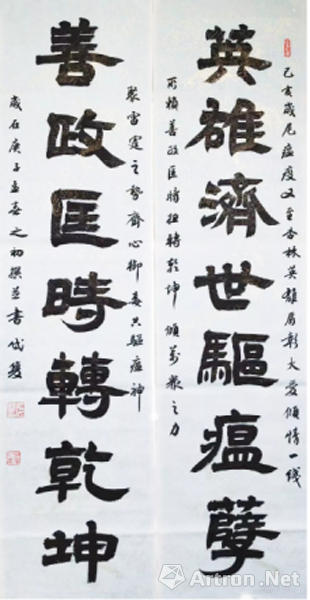 己亥歲尾瘟疫又至杏林英雄肩彰大愛傾情一线
英雄濟世驅瘟孽
所賴善政匡時扭轉乾坤傾萬眾之力
聚雷霆之勢齊心御毒共驅瘟神
善政匡時轉乾坤
歲在庚子孟春之初撰並書
Artron.Net